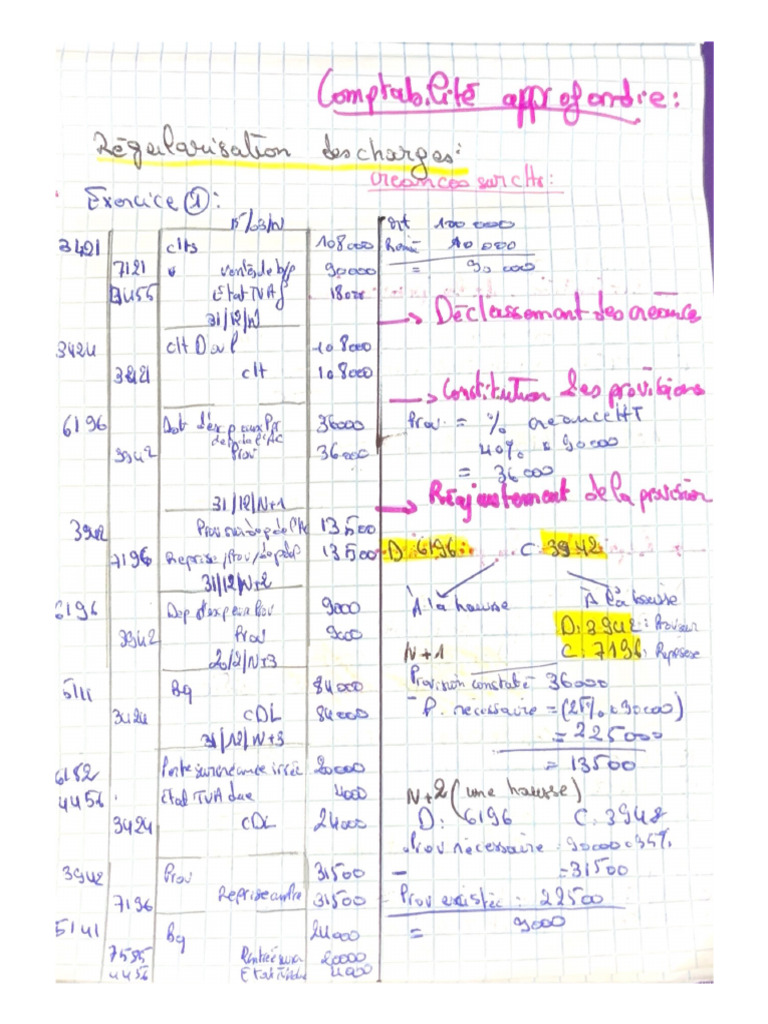 Comptabilité approfondie:
Régularisation des charges:
creances sur clts:
Exercice 1:
15/03/N
3421 clts 108000
7121 ventes de b/p 90000
4455 Etat TVA f 18000
31/12/N
3424 clt D ou l 108000
3421 clt 108000
6196 Dot d'exp aux Pr 36000
3942 Prov 36000
31/12/N+1
3942 13500
7196 Reprise/Prov/ 13500
31/12/N+2
6196 9000
3942 Prov 9000
20/2/N+3
5141 Bq 84000
3424 CDL 84000
31/12/N+3
6182 Perte sur créance 20000
4456 Etat TVA due 4000
3424 CDL 24000
3942 Prov 31500
7196 Reprise 31500
5141 Bq 24000
7585 Rentrée sur 20000
4456 Etat 4000
100 000
10 000
= 90 000
→ Déclassement des créance
→ Constitution des provisions
Prov. = % creance HT
40% × 90000
= 36 000
→ Réajustement de la provision
D: 6196. C: 3942.
À la hausse À la baisse
D: 3942:
C: 7196: Reprise
N+1
Provision constaté 36000
- P. nécessaire = (25% × 90000)
= 225000
= 13500
N+2 (une hausse)
D: 6196 C: 3942
Prov nécessaire: 90000×35%
= 31500
- Prov existée: 22500
= 9000